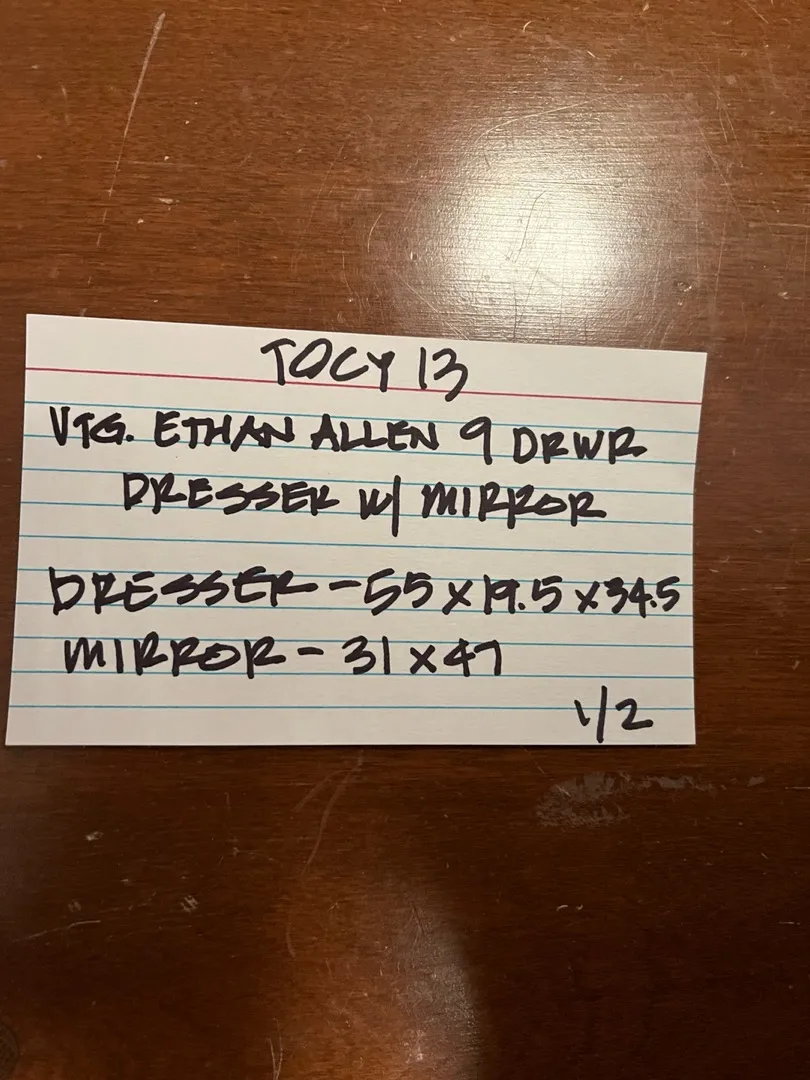 TOCY 13
VTG. ETHAN ALLEN 9 DRWR
DRESSER W/ MIRROR
DRESSER - 55 x 19.5 x 34.5
MIRROR - 31 x 47
1/2